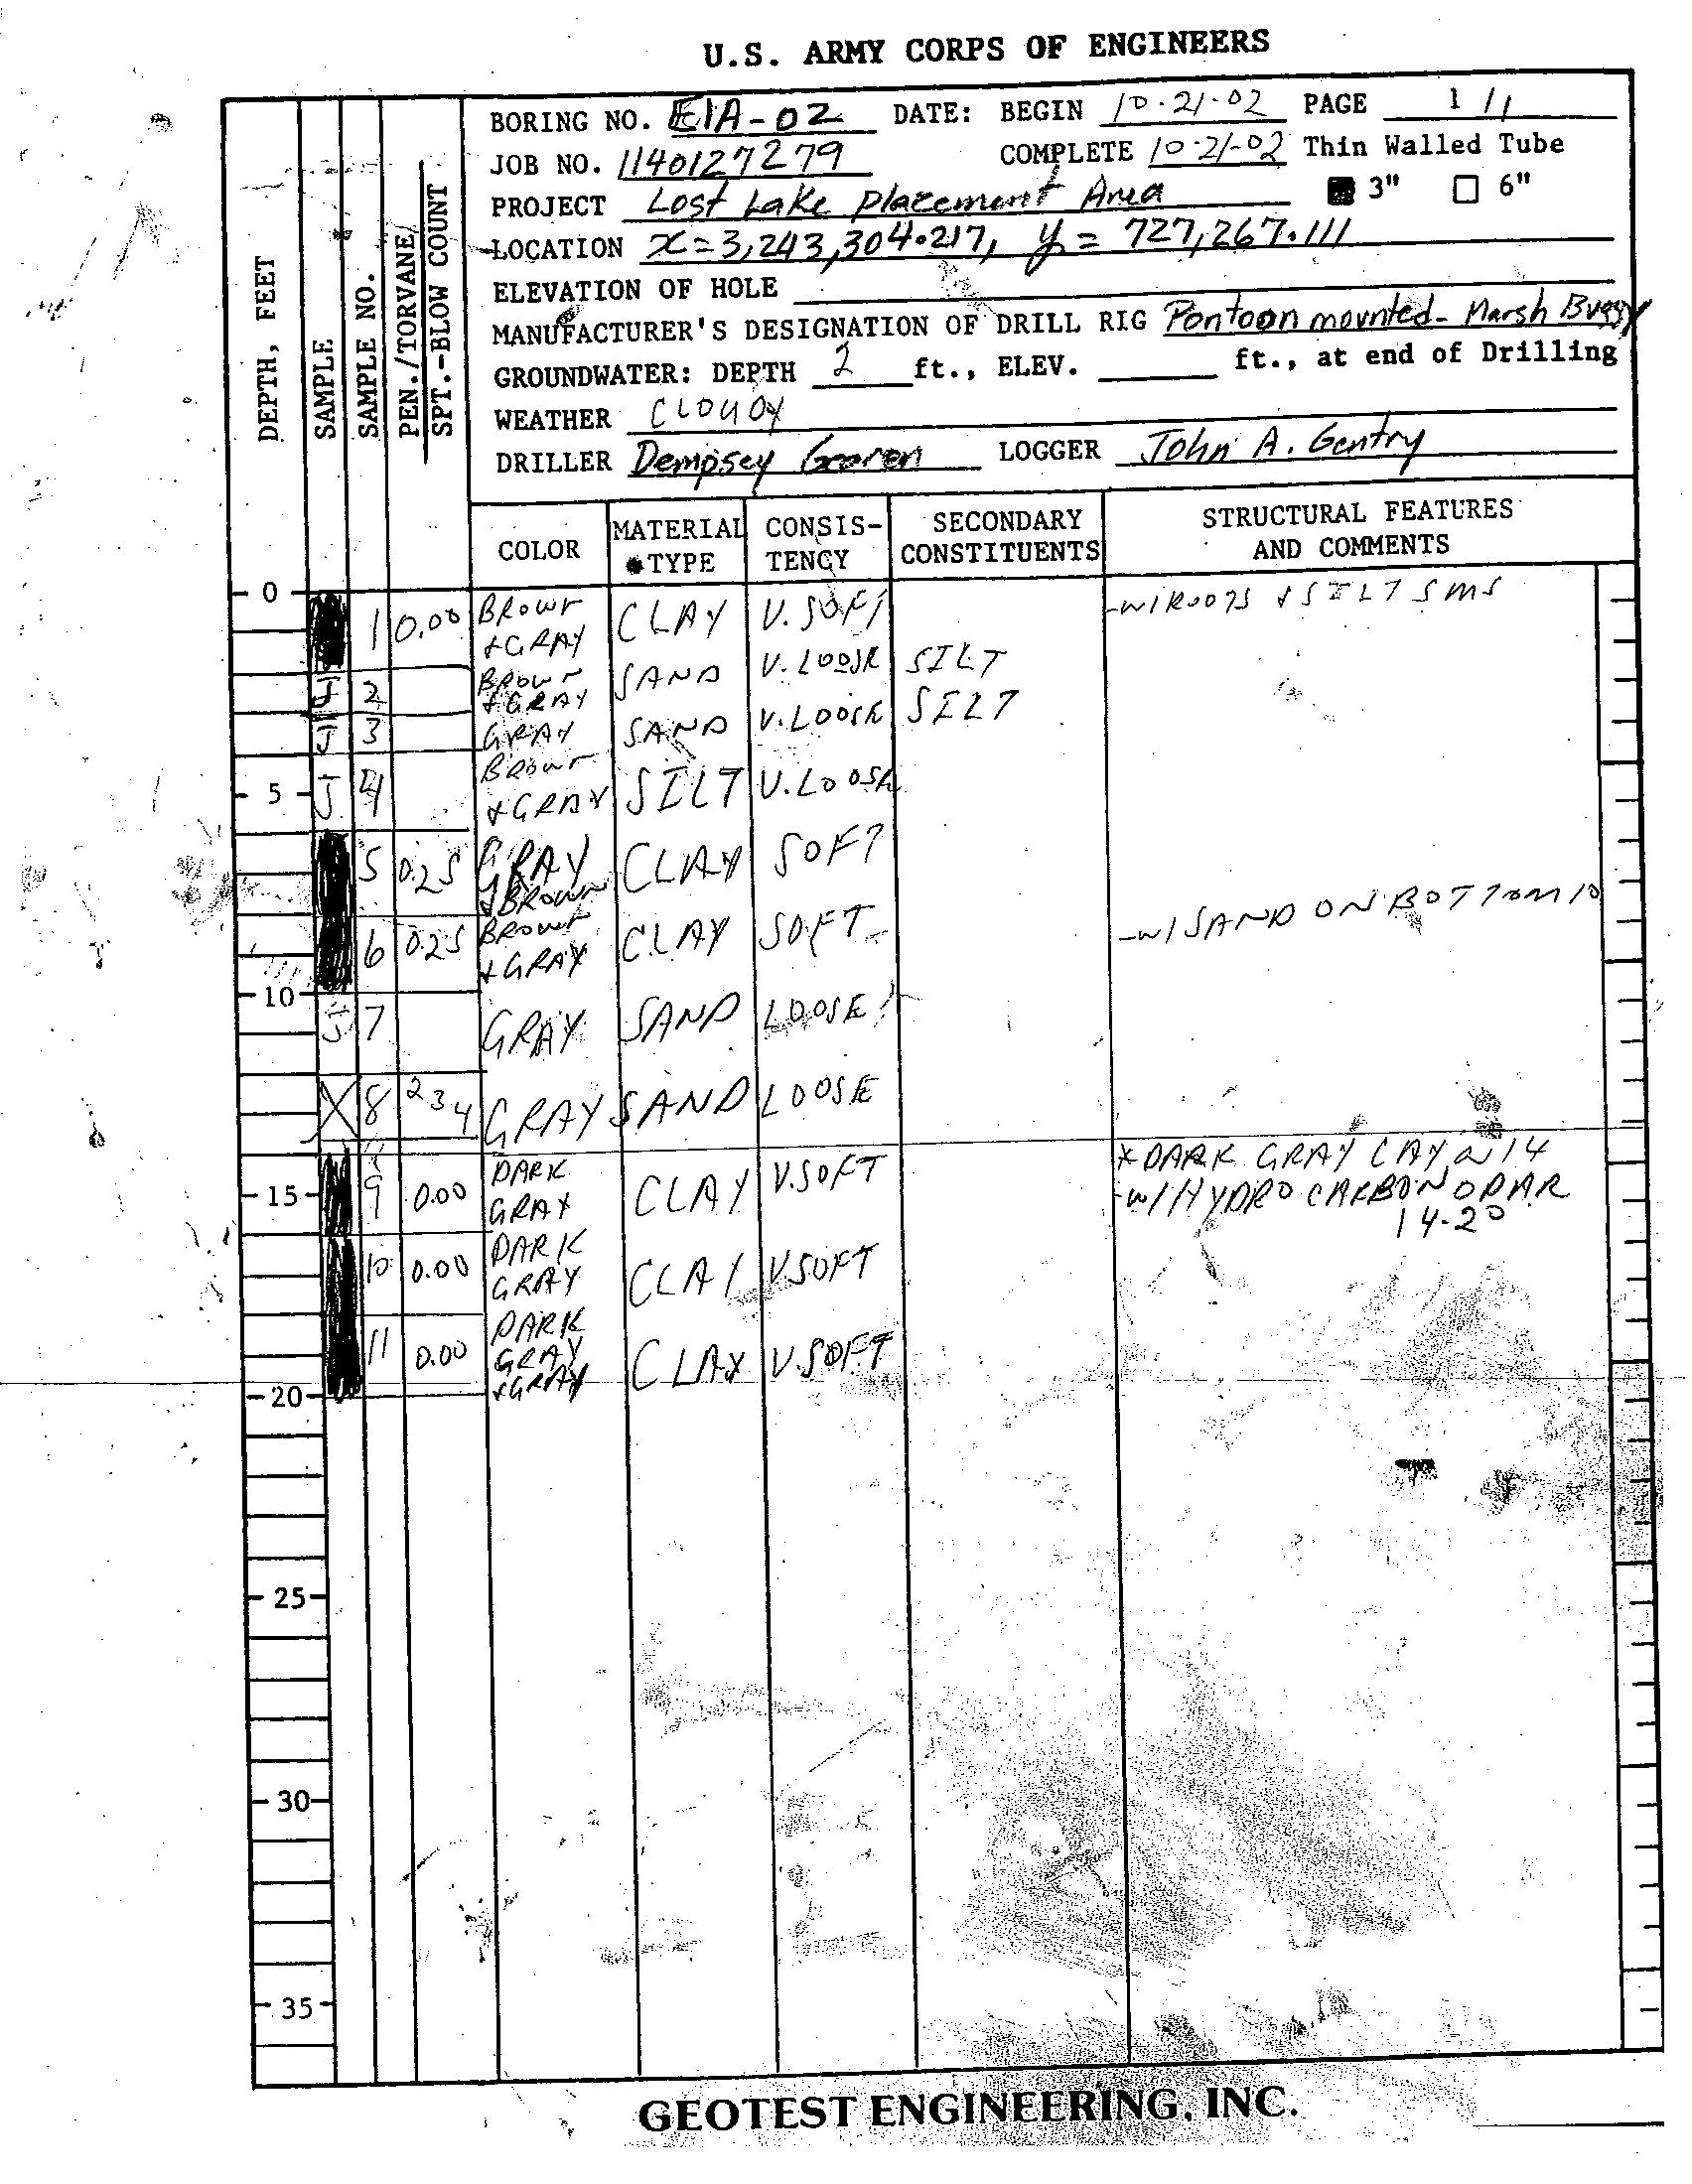 U.S. ARMY CORPS OF ENGINEERS
BORING NO. EIA-02 DATE: BEGIN 10-21-02 PAGE 1/1
JOB NO. 1140127279 COMPLETE 10-21-02 Thin Walled Tube
PROJECT Lost Lake Placement Area 3" 6"
LOCATION x=3,243,304.217, y= 727,267.111
ELEVATION OF HOLE
MANUFACTURER'S DESIGNATION OF DRILL RIG Pontoon mounted- Marsh Buggy
GROUNDWATER: DEPTH 2 ft., ELEV. ft., at end of Drilling
WEATHER CLOUDY
DRILLER Dempsey LOGGER John A. Gentry
DEPTH, FEET
SAMPLE
SAMPLE NO.
PEN./TORVANE/
SPT.-BLOW COUNT
COLOR MATERIAL TYPE CONSIS-TENCY SECONDARY CONSTITUENTS STRUCTURAL FEATURES AND COMMENTS
0
1 0.00 BROWN +GRAY CLAY V. SOFT -W/ROOTS + SILT SMS
J 2 BROWN +GRAY SAND V. LOOSE SILT
J 3 GRAY SAND V. LOOSE SILT
5 J 4 BROWN +GRAY SILT V. LOOSE
5 0.25 GRAY +BROWN CLAY SOFT
6 0.25 BROWN +GRAY CLAY SOFT -W/SAND ON BOTTOM 10
10
J 7 GRAY SAND LOOSE
8 2 3 4 GRAY SAND LOOSE
*DARK GRAY CLAY @ 14
15 9 0.00 DARK GRAY CLAY V.SOFT -W/HYDROCARBON ODAR
14-20
10 0.00 DARK GRAY CLAY V.SOFT
11 0.00 DARK GRAY +GRAY CLAY V.SOFT
20
25
30
35
GEOTEST ENGINEERING, INC.